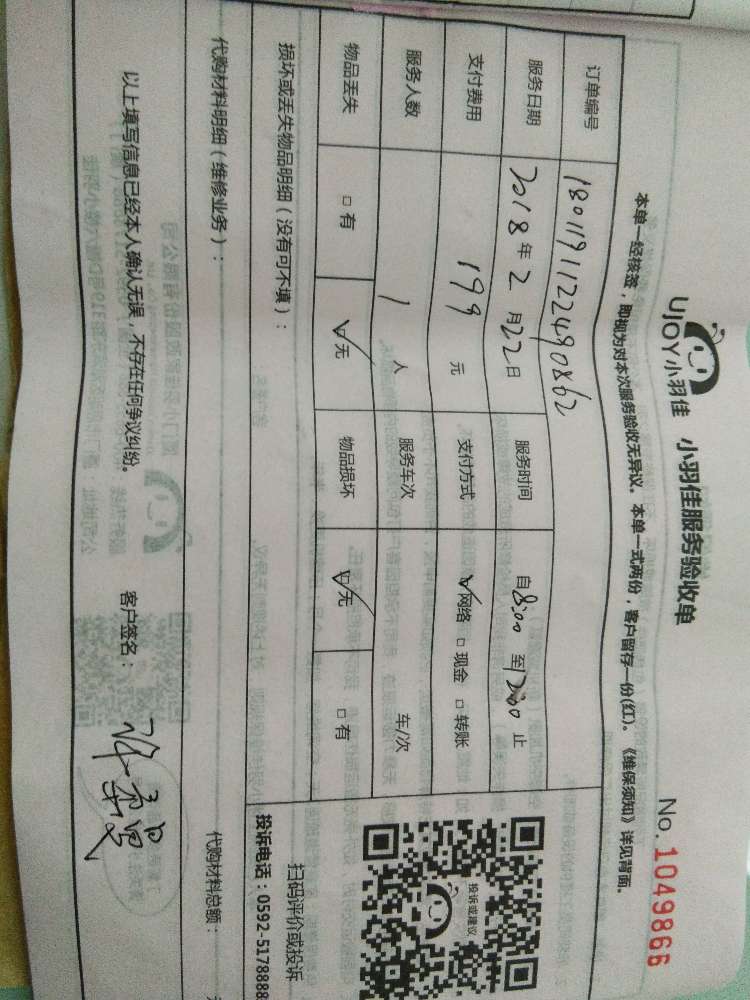 UJOY小羽佳 小羽佳服务验收单 No. 1049866
本单一经核签，即视为对本次服务验收无异议。本单一式两份，客户留存一份(红)。《维保须知》详见背面。
订单编号 18011911224490862
服务日期 2018年2月22日 服务时间 自8:00 至12:00 止
支付费用 199 元 支付方式 ☑网络 □现金 □转账
服务人数 1 人 服务车次 车/次
物品丢失 □有 ☑无 物品损坏 ☑无 □有
投诉或建议
扫码评价或投诉
损坏或丢失物品明细（没有可不填）：
投诉电话：0592-5178888
代购材料明细（维修业务）： 代购材料总额：
以上填写信息已经本人确认无误，不存在任何争议纠纷。 客户签名：